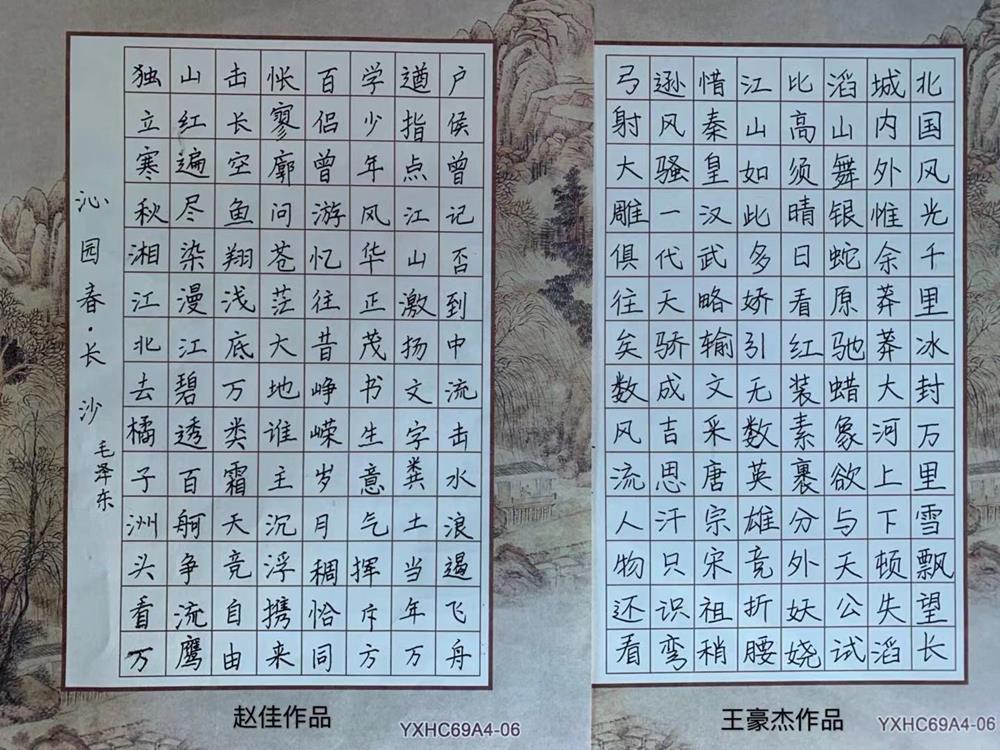 沁园春·长沙
毛泽东
独立寒秋湘江北去橘子洲头看万
山红遍尽染漫江碧透百舸争流鹰
击长空鱼翔浅底万类霜天竞自由
怅寥廓问苍茫大地谁主沉浮携来
百侣曾游忆往昔峥嵘岁月稠恰同
学少年风华正茂书生意气挥斥方
遒指点江山激扬文字粪土当年万
户侯曾记否到中流击水浪遏飞舟
赵佳作品
YXHC69A4-06
北国风光千里冰封万里雪飘望长
城内外惟余莽莽大河上下顿失滔
滔山舞银蛇原驰蜡象欲与天公试
比高须晴日看红装素裹分外妖娆
江山如此多娇引无数英雄竞折腰
惜秦皇汉武略输文采唐宗宋祖稍
逊风骚一代天骄成吉思汗只识弯
弓射大雕俱往矣数风流人物还看
王豪杰作品
YXHC69A4-06